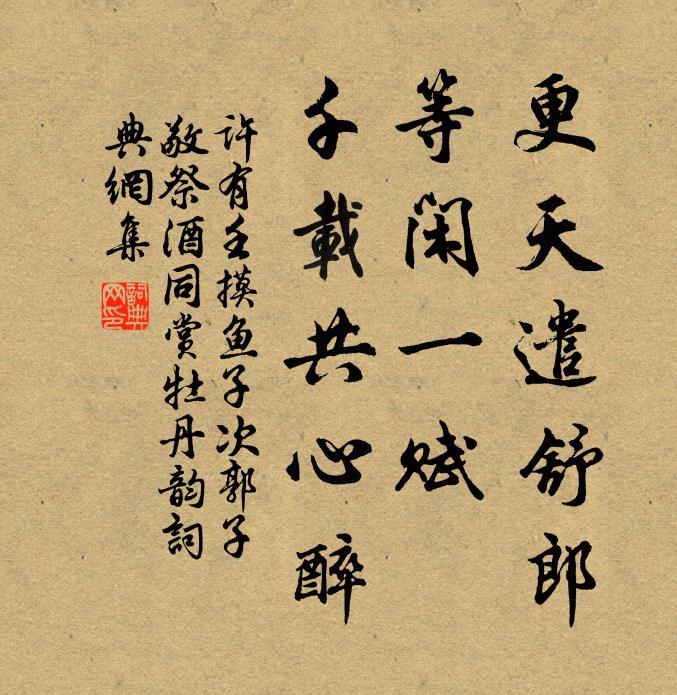 更天遣舒郎
等閑一賦
千載共心醉
許有壬摸魚子次郭子
敬祭酒同賞牡丹韵詞
典網集
詞典网印